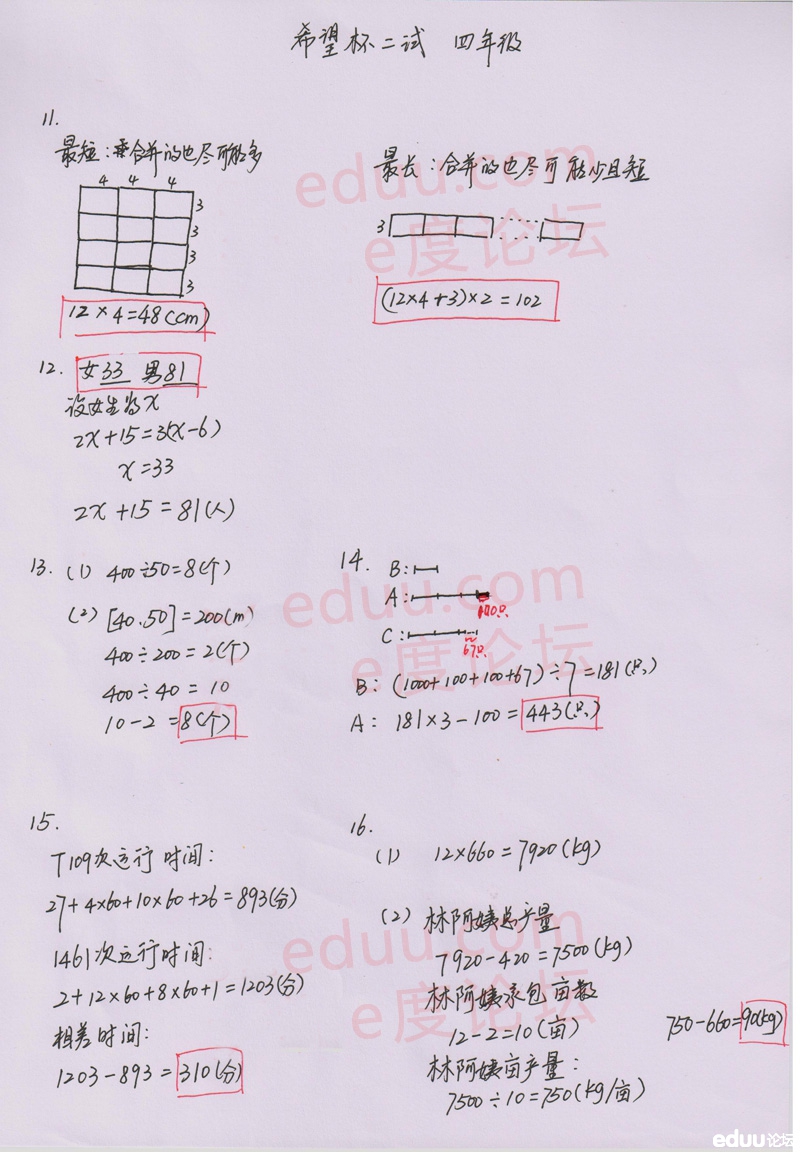 希望杯二试 四年级
11.
最短：合并的边尽可能多
4 4 4
3
3
3
3
12×4=48(cm)
最长：合并的边尽可能少且短
3
(12×4+3)×2=102
12. 女33 男81
设女生为x
2x+15=3(x-6)
x=33
2x+15=81(人)
13. (1) 400÷50=8(个)
(2) [40.50]=200(m)
400÷200=2(个)
400÷40=10
10-2=8(个)
14. B:
A:
100只
C:
67只
B: (1000+100+100+67)÷7=181(只)
A: 181×3-100=443(只)
15.
T109次运行时间:
27+4×60+10×60+26=893(分)
1461次运行时间:
2+12×60+8×60+1=1203(分)
相差时间:
1203-893=310(分)
16.
(1) 12×660=7920(kg)
(2) 林阿姨总产量
7920-420=7500(kg)
林阿姨承包亩数
12-2=10(亩)
林阿姨亩产量:
7500÷10=750(kg/亩)
750-660=90(kg)
eduu.com
e度论坛
eduu.com
e度论坛
eduu.com
e度论坛
eduu论坛